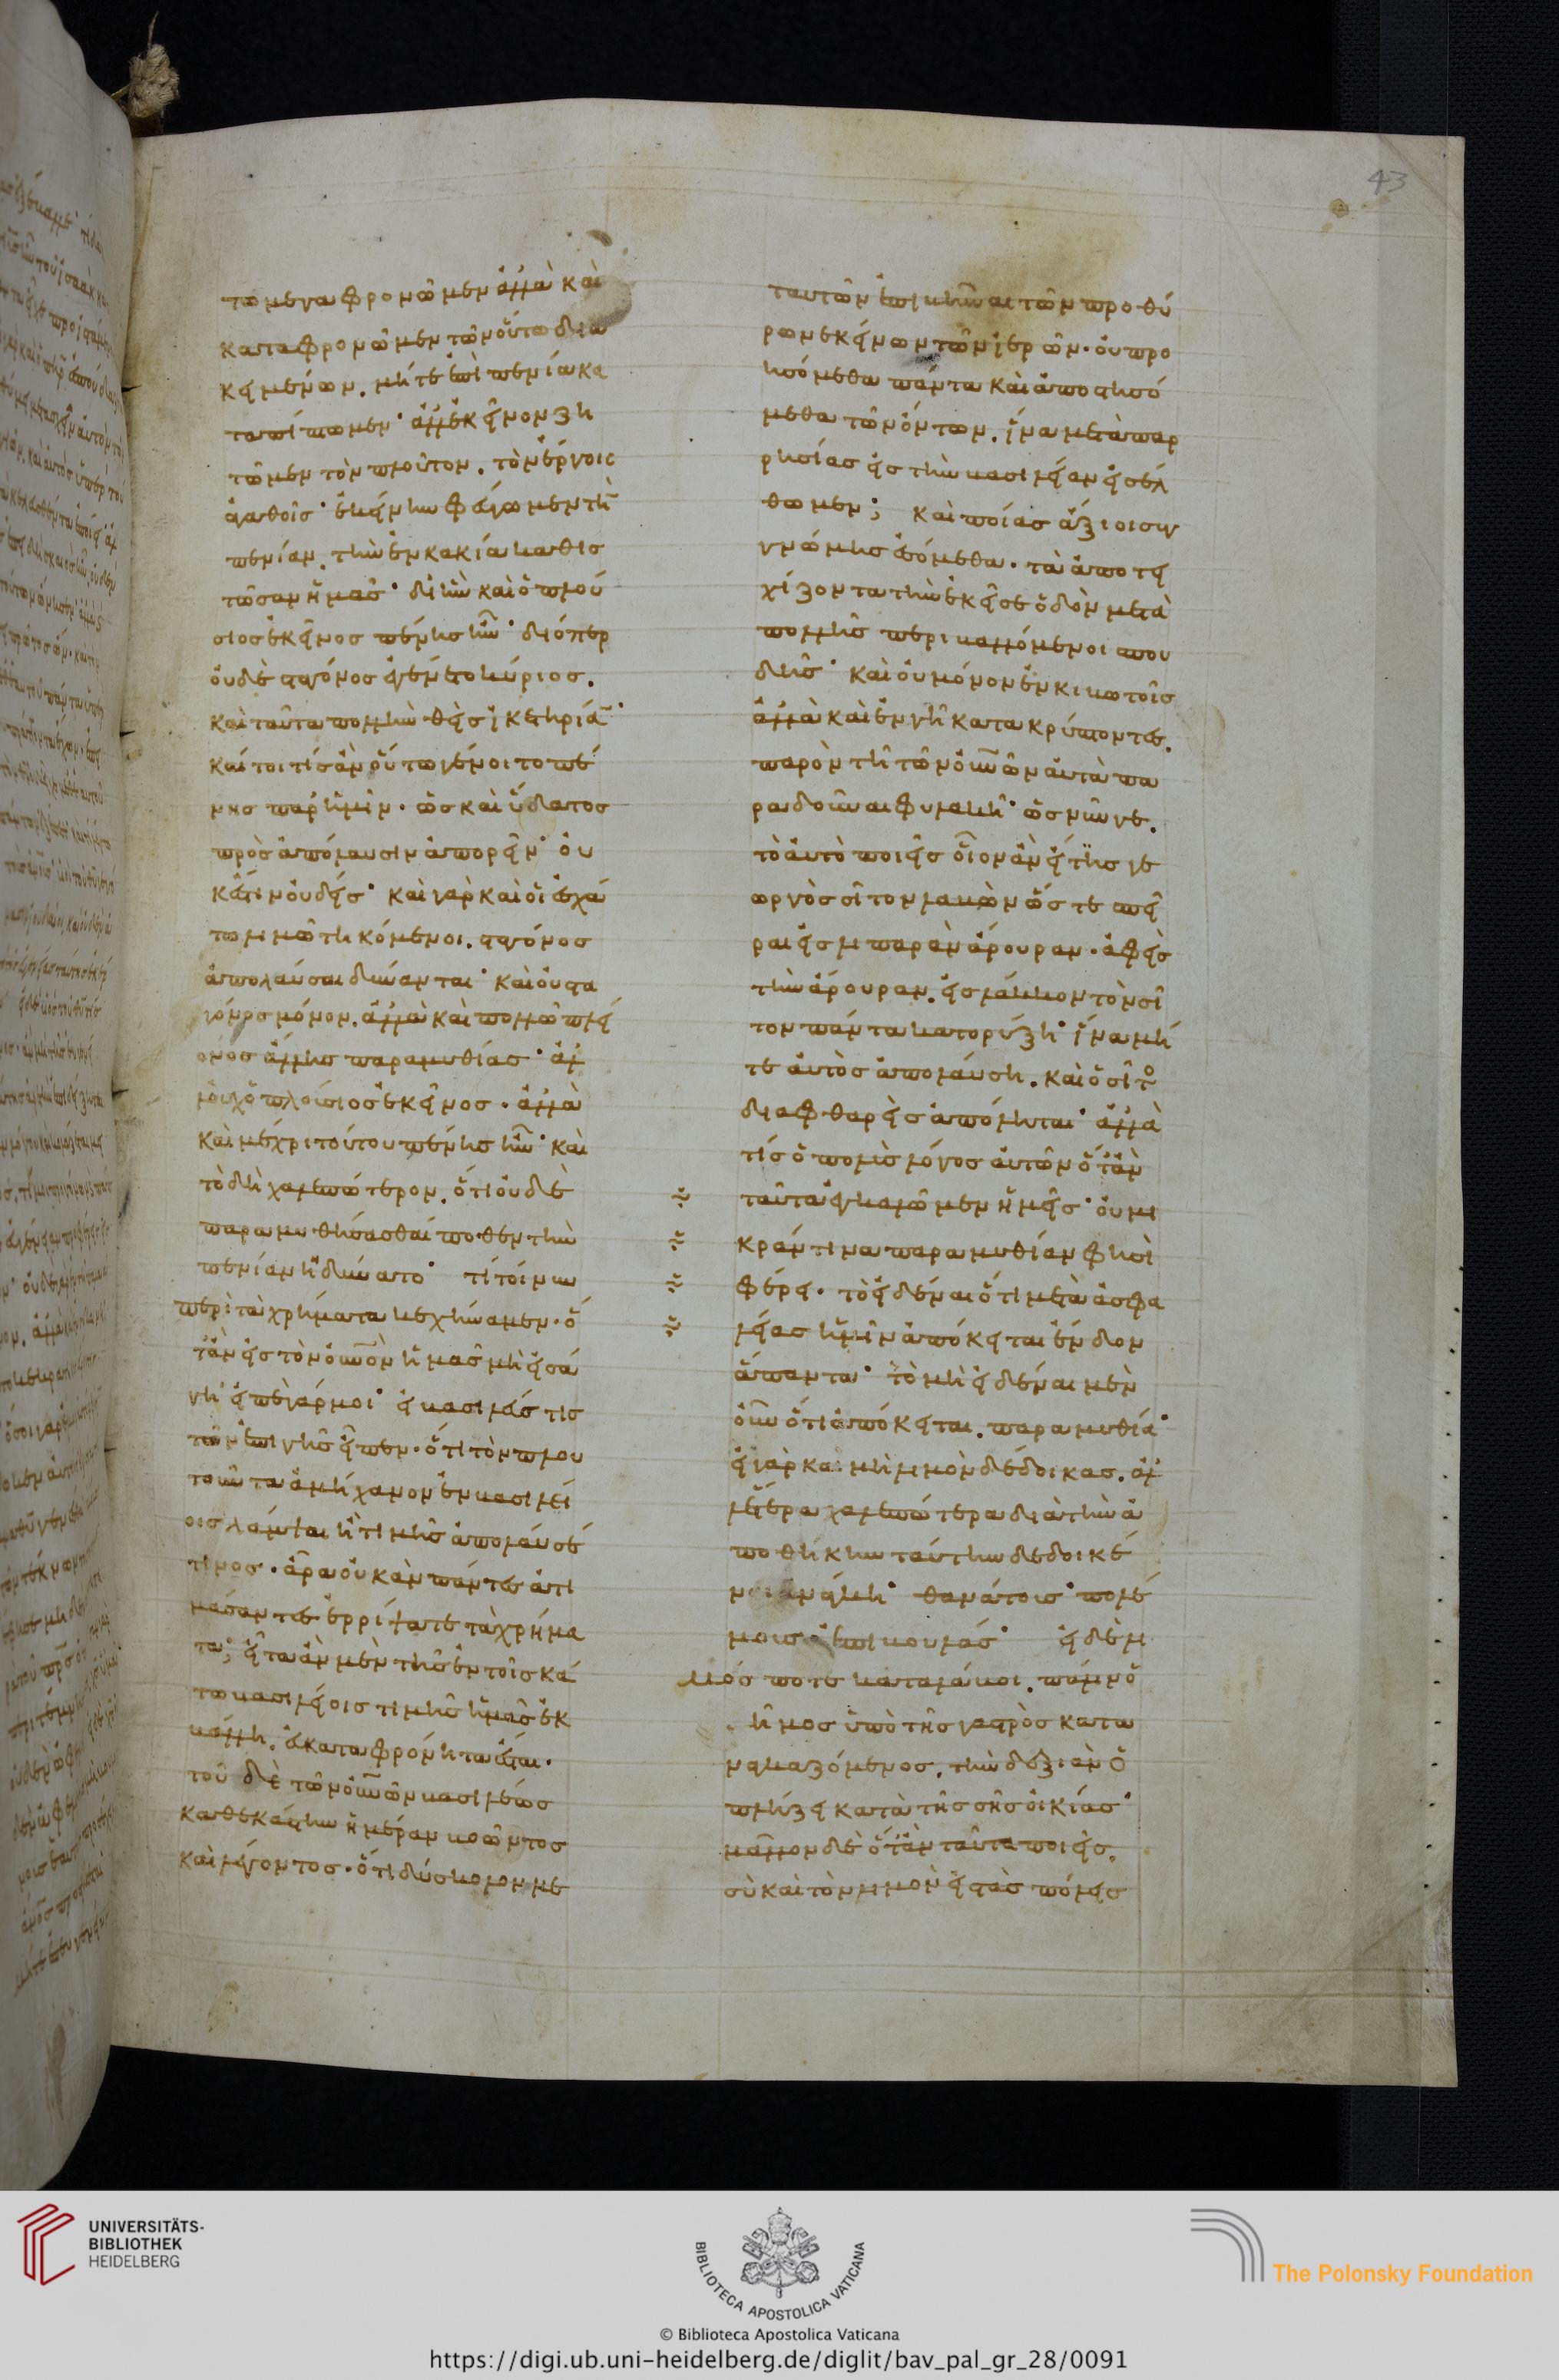 43
τω μέγα φρονῶμεν ἀλλὰ καὶ
καταφρονῶμεν τῶν οὕτω δια
κειμένων. μήτε ἐπὶ πενία κα
ταπίπτωμεν· ἀλλ' ἐκεῖνον ζη
τῶμεν τὸν πλοῦτον. τὸν ἐν ἔργοις
ἀγαθοῖς· ἐκείνην φεύγωμεν τὴν
πενίαν. τὴν ἐν κακία καθισ
τῶσαν ἡμᾶς· δι' ἣν καὶ ὁ πλού
σιος ἐκεῖνος πένης ἦν· διόπερ
οὐδὲ σταγόνος ἐγένετο κύριος.
καὶ ταῦτα πολλὴν θεὶς ἱκετηρίαν·
καίτοι τίς ἂν οὕτω γένοιτο πέ
νης παρ' ἡμῖν. ὡς καὶ ὕδατος
πρὸς ἀπόλαυσιν ἀπορεῖν· οὐ
κ ἔστιν οὐδείς· καὶ γὰρ καὶ οἱ ἐσχά
τω λιμῶ τηκόμενοι. σταγόνος
ἀπολαῦσαι δύνανται· καὶ οὐ στα
γόνος μόνον. ἀλλὰ καὶ πολλῶ πλεί
ονος ἄλλης παραμυθίας· ἀλ
λ' οὐχ ὁ πλούσιος ἐκεῖνος. ἀλλὰ
καὶ μέχρι τούτου πένης ἦν· καὶ
τὸ δὴ χαλεπώτερον. ὅτι οὐδὲ
παραμυθήσασθαί ποθεν τὴν
πενίαν ἠδύνατο· τί τοίνυν
περὶ τὰ χρήματα κεχήναμεν. ὅ
τ' ἂν εἰς τὸν οὐνὸν ἡμᾶς μὴ εἰσά
γη· εἰπὲ γάρ μοι· εἰ βασιλεύς τις
τῶν ἐπι γῆς εἶπεν. ὅτι τὸν πλου
τοῦντα ἀμήχανον ἐν βασιλεί
οις λάμψαι ἢ τιμῆς ἀπολαῦσέ
τινος. ἆρα οὐκ ἂν πάντες ἀτι
μάσαντες ἐρρίψατε τὰ χρήμα
τα; εἶτα ἂν μὲν τῆς ἐν τοῖς κά
τω βασιλείοις τιμῆς ἡμᾶς ἐκ
βάλλη. εὐκαταφρόνητα ἔσται.
τοῦ δὲ τῶν οὐνῶν βασιλέως
καθεκάστην ἡμέραν βοῶντος
καὶ λέγοντος. ὅτι δύσκολον με
τ αυτῶν ἐπιβῆναι τῶν προθύ
ρων ἐκείνων τῶν ἱερῶν. οὐ προ
ησόμεθα πάντα καὶ ἀποστησό
μεθα τῶν ὄντων. ἵνα μετὰ παρ
ρησίας εἰς τὴν βασιλείαν εἰσέλ
θωμεν; καὶ ποίας ἄξιοι συγ
γνώμης ἐσόμεθα. τὰ ἀποτει
χίζοντα τὴν ἐκεῖσε ὁδὸν μετὰ
πολλῆς περιβαλλόμενοι σπου
δῆς· καὶ οὐ μόνον ἐν κιβωτοῖς
ἀλλὰ καὶ ἐν γῆ κατακρύπτοντες.
παρὸν τῆ τῶν οὐνῶν αὐτὰ πα
ραδοῦναι φυλακῆ· ὡς νῦν γε.
τὸ αὐτὸ ποιεῖς οἷον ἂν εἴ τις γε
ωργὸς σῖτον λαβὼν ὥστε σπεῖ
ραι εἰς λιπαρὰν ἄρουραν. ἀφεὶς
τὴν ἄρουραν. εἰς λάκκον τὸν σῖ
τον πάντα κατορύξη· ἵνα μή
τε αὐτὸς ἀπολαύση. καὶ ὁ σῖτο
διαφθαρεὶς ἀπόληται· ἀλλὰ
τίς ὁ πολὺς λόγος αὐτῶν ὅτ' ἂν
ταῦτα ἐγκαλῶμεν ἡμεῖς· οὐ μι
κράν τινα παραμυθίαν φησὶ
φέρει. τὸ εἰδέναι ὅτι μετὰ ἀσφα
λείας ἡμῖν ἀπόκειται ἔνδον
ἅπαντα· τὸ μὴ εἰδέναι μὲν
οὖν ὅτι ἀπόκειται. παραμυθία·
εἰ γὰρ καὶ μὴ λιμὸν δέδοικας. ἀλ
λ' ἕτερα χαλεπώτερα διὰ τὴν ἀ
ποθήκην ταύτην δεδοικέ
ναι ἀνάγκη· θανάτους· πολέ
μους ἐπιβουλάς· εἰ δὲ λι
μός ποτε καταλάβοι. πάλιν ὁ
δῆμος ὑπὸ τῆς γαστρὸς κατα
ναγκαζόμενος. τὴν δεξιὰν ὁ
πλίζει κατὰ τῆς σῆς οἰκίας·
μᾶλλον δὲ ὅτ' ἂν ταῦτα ποιεῖς.
σὺ καὶ τὸν λιμὸν εἰς τὰς πόλεις
UNIVERSITÄTS-
BIBLIOTHEK
HEIDELBERG
BIBLIOTECA APOSTOLICA VATICANA
The Polonsky Foundation
© Biblioteca Apostolica Vaticana
https://digi.ub.uni-heidelberg.de/diglit/bav_pal_gr_28/0091